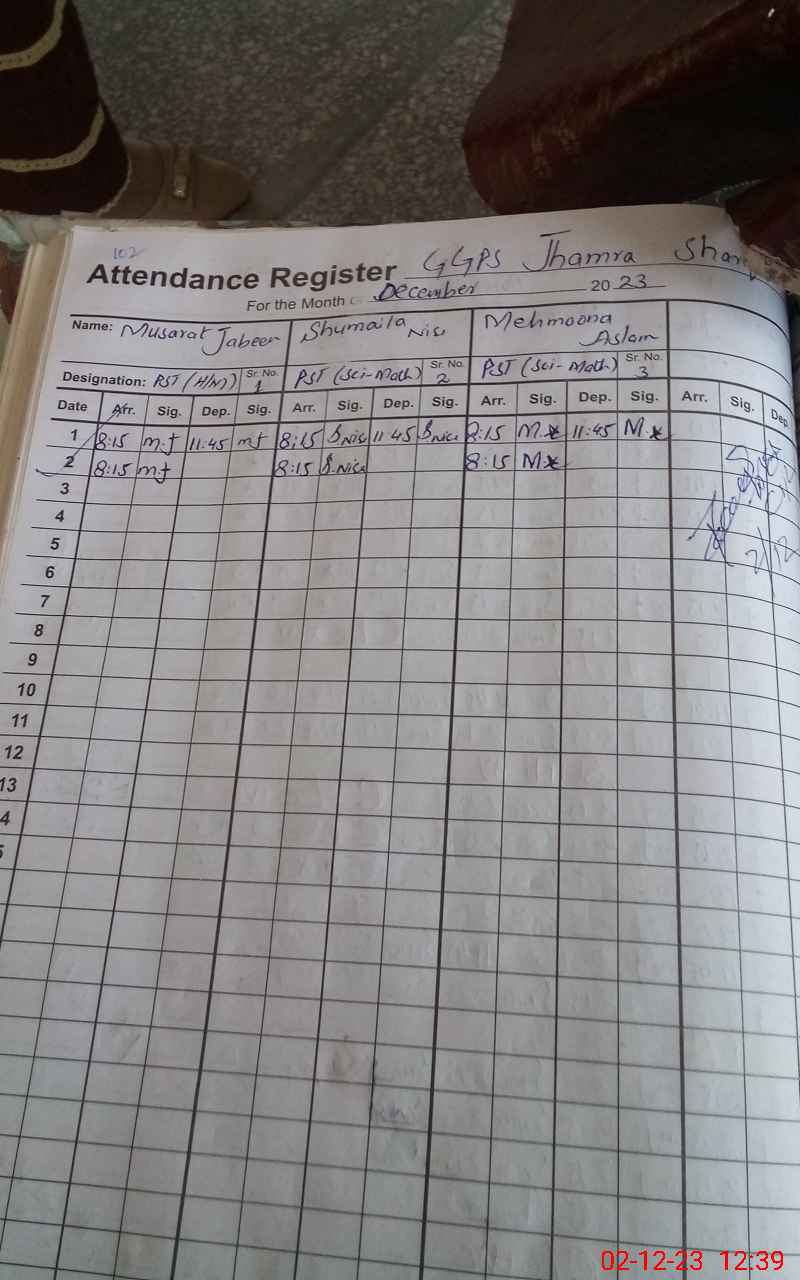 102
Attendance Register GGPS Jhamra Shar
For the Month December 2023
Name: Musarat Jabeen Shumaila Nisa Mehmoona Aslam
Designation: PST (H/M) Sr. No. 1 PST (Sci-Math) Sr. No. 2 PST (Sci-Math) Sr. No. 3
Date Arr. Sig. Dep. Sig. Arr. Sig. Dep. Sig. Arr. Sig. Dep. Sig. Arr. Sig. Dep
1 8:15 m.j 11:45 mj 8:15 S.Nisa 11:45 S.Nisa 8:15 M.* 11:45 M.*
2 8:15 mj 8:15 S.Nisa 8:15 M*
3
4
5
6
7
8
9
10
11
12
13
4
5
2/12
02-12-23 12:39